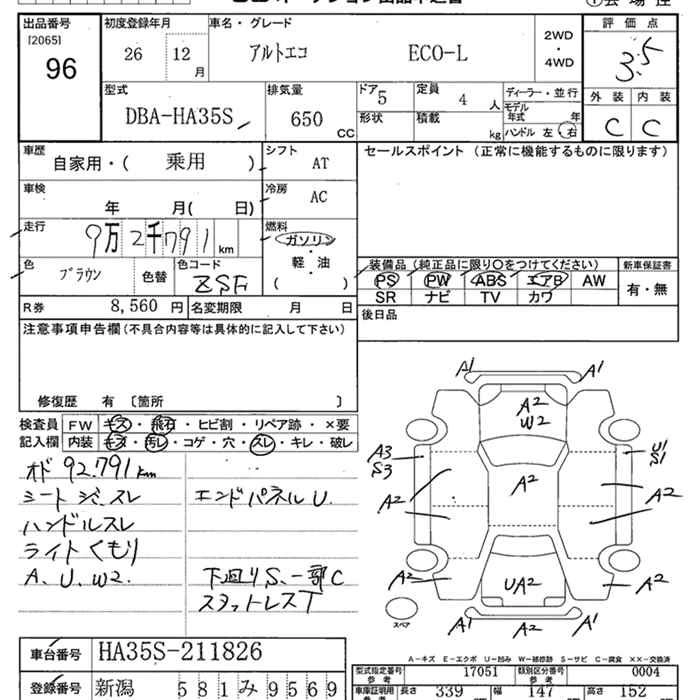 出品番号 初度登録年月 車名・グレード 評価点
[2065]
96 26 12月 アルトエコ ECO-L 2WD・4WD 3.5
外装 内装
C C
型式 排気量 ドア 定員 ディーラー・並行
DBA-HA35S 650 CC 5 4 人 モデル年式 年
形状 積載 kg ハンドル 左 右
車歴 シフト セールスポイント (正常に機能するものに限ります)
自家用・( 乗用 ) AT
車検 冷房
年 月( 日) AC
走行 燃料
9万2千791 km ガソリン
軽・油
( )
色 色コード 装備品 (純正品に限り〇をつけてください) 新車保証書
ブラウン 色替 ZSF PS PW ABS エアB AW 有・無
SR ナビ TV カワ
R券 8,560 円 名変期限 月 日 後日品
注意事項申告欄(不具合内容等は具体的に記入して下さい)
修復歴 有 〔箇所 〕
検査員 FW キズ・飛石・ヒビ割・リペア跡・×要
記入欄 内装 キズ・汚レ・コゲ・穴・スレ・キレ・破レ
オド 92.791km
ハンドルスレ エンドパネルU.
ライトくもり
A、U、W2. 下廻りS、一部C
スタットレスT
A1 A1
A2
W2
A3 U1
S3 S1
A2 A2 A2
A2 UA2 A2
A1 A2 A1
スペア
A-キズ E-エクボ U-凹み W-補修跡 S-サビ C-腐食 XX-交換済
車台番号 HA35S-211826 型式指定番号 参考 17051 類別区分番号 参考 0004
登録番号 新潟 581み9569 車庫証明用 参考 長さ 339 幅 147 高さ 152